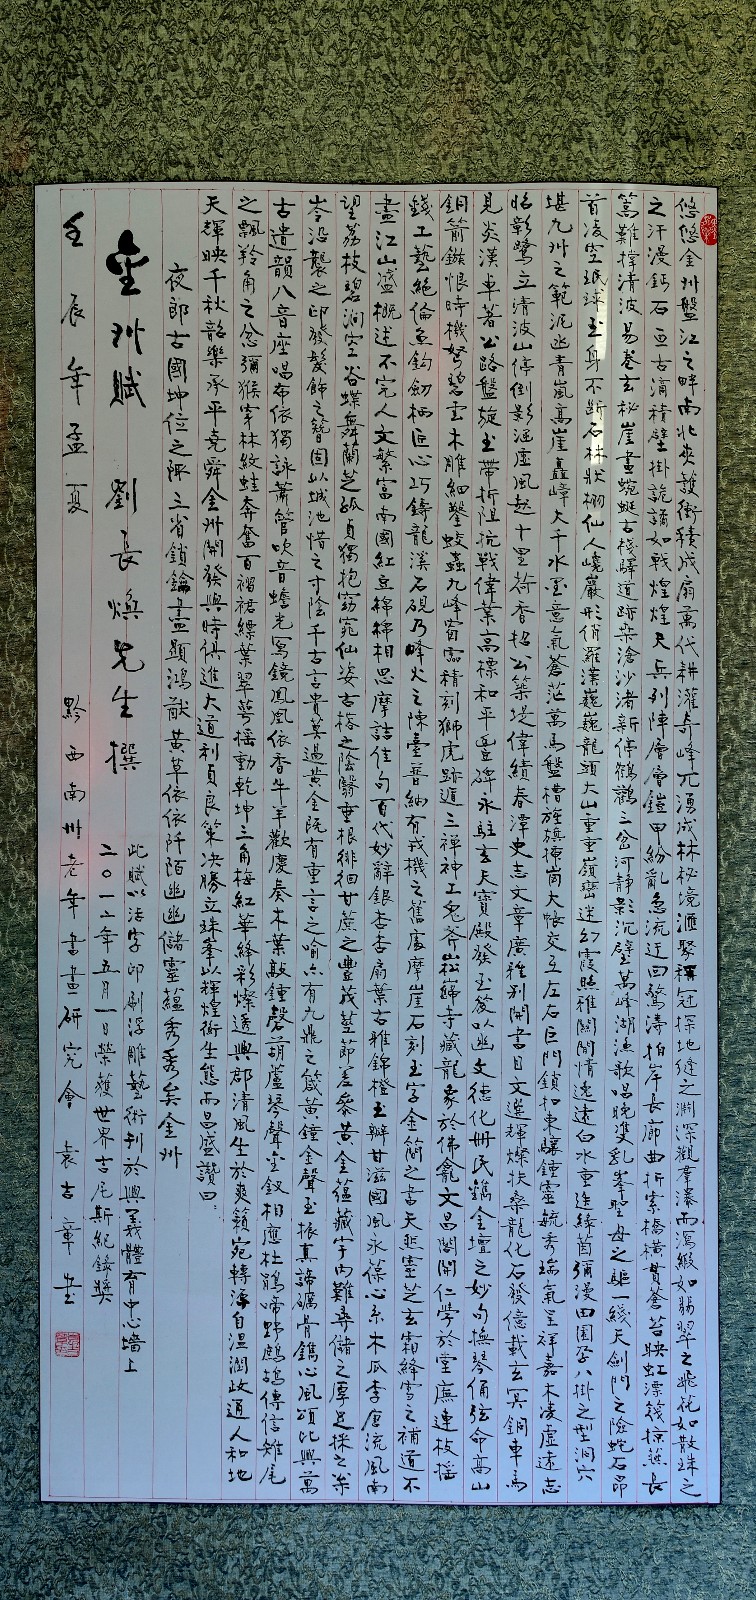 悠悠金州盤江之畔南北夾護衝積成扇萬代耕灌奇峰兀湧成林秘境滙聚稱冠探地縫之淵深觀群瀑而瀉緞如翡翠之飛花如散珠之
之汗漫鈣石亙古滴積壁掛詭譎如戰煌煌天兵列陣層層鎧甲紛亂急流迂回驚濤拍岸長廊曲折索橋橫貫蒼苔映虹漂筏掠燕長
篙難撐清波易卷玄秘崖畫蜿蜒古棧驛道跡染滄沙渚新停鶴鸛三岔河靜影沉璧萬峰湖漁歌唱晚雙乳峯聖母之軀一綫天劍門之險蛇石昂
首凌空玉身不斷石林狀栩仙人嶢巖形俏羅漢巍巍龍頭大山重重嶺巒迷幻霞映雅閣閒情逸遠白水重連綠茵彌漫田園孕八掛之型洞穴
堪九州之範泥凼青嵐高崖矗嶂大千水墨意氣蒼茫萬馬盤槽旌旗掩崗大帳交互左右巨門鎖扣東驤鍾靈毓秀瑞氣呈祥嘉木凌虛遠志
昭彰鷺立清波山停倒影涵虛風起十里荷香招公築堤偉績春潭史志文章廣雅別開書目文選輝燦扶桑龍化石發億載玄冥銅車馬
見炎漢車著公路盤旋玉帶折阻抗戰偉業高標和平豐碑永駐玄天寶殿發玉笈以幽文德化册民鐫金壇之妙句撫琴俑弦命高山
銅箭鏃恨時機弩碧雲木雕細鏨蛟蟲九峰笛需精刻獅虎跡遁三禪神工鬼斧崧薛寺藏龍象於佛龕文昌閣開仁學於堂廡連枝搖
錢工藝絕倫魚鈎劒柄匠心巧鑄龍溪石硯乃峰火之陳臺普納有戎機之舊度摩崖石刻玉字金簡之書天悲靈芝玄霜絳雪之補道不
盡江山盛概述不完人文繁富南國紅豆棉棉相思摩詰佳句百代妙辭銀杏杏扇葉古雅錦橙玉瓣甘滋國風永葆心系木瓜李唐流風南
望荔枝碧澗空谷蝶舞蘭芝孤貞獨抱窈窕仙姿古榕之陰翳垂根徘徊甘蔗之豐茂莖節差參黃金蘊藏宇内難尋儲之厚足採之
岑沿襲之印發髮飾之簪固以城池惜之寸陰千古言貴莫過黃金既有重言之喻六有九鼎之箴黃鐘金聲玉振真諦礪骨鐫心風頌比興萬
古遺韻八音座唱布依獨詠蕭管吹音蟾光寫鏡鳳凰依香牛羊歡慶奏木葉敲鍾磬葫蘆琴聲金釵相應杜鵑啼野鷓鴣傳信雉尾
之飄羚角之忿彌猴穿林紋蛙奔奮百褶裙縹葉翠萼摇動乾坤三角梅紅華絳彩燦透興郡清風生於爽籟宛轉海自温潤政通人和地
天輝映千秋韶樂承平堯舜金州開發興時俱進大道利貞良策決勝立珠峯以輝煌衛生態而昌盛讚曰：
夜郎古國坤位之陬三省鎖鑰盡顯鴻猷黃草依依阡陌幽幽儲靈蘊秀秀矣金州
金州賦　劉長煥先生撰
此賦以法字印刷浮雕藝術刊於興義體育中心墻上
二〇一二年五月一日榮獲世界吉尼斯紀錄獎
壬辰年孟夏　黔西南州老年書畫研究會　袁古章書